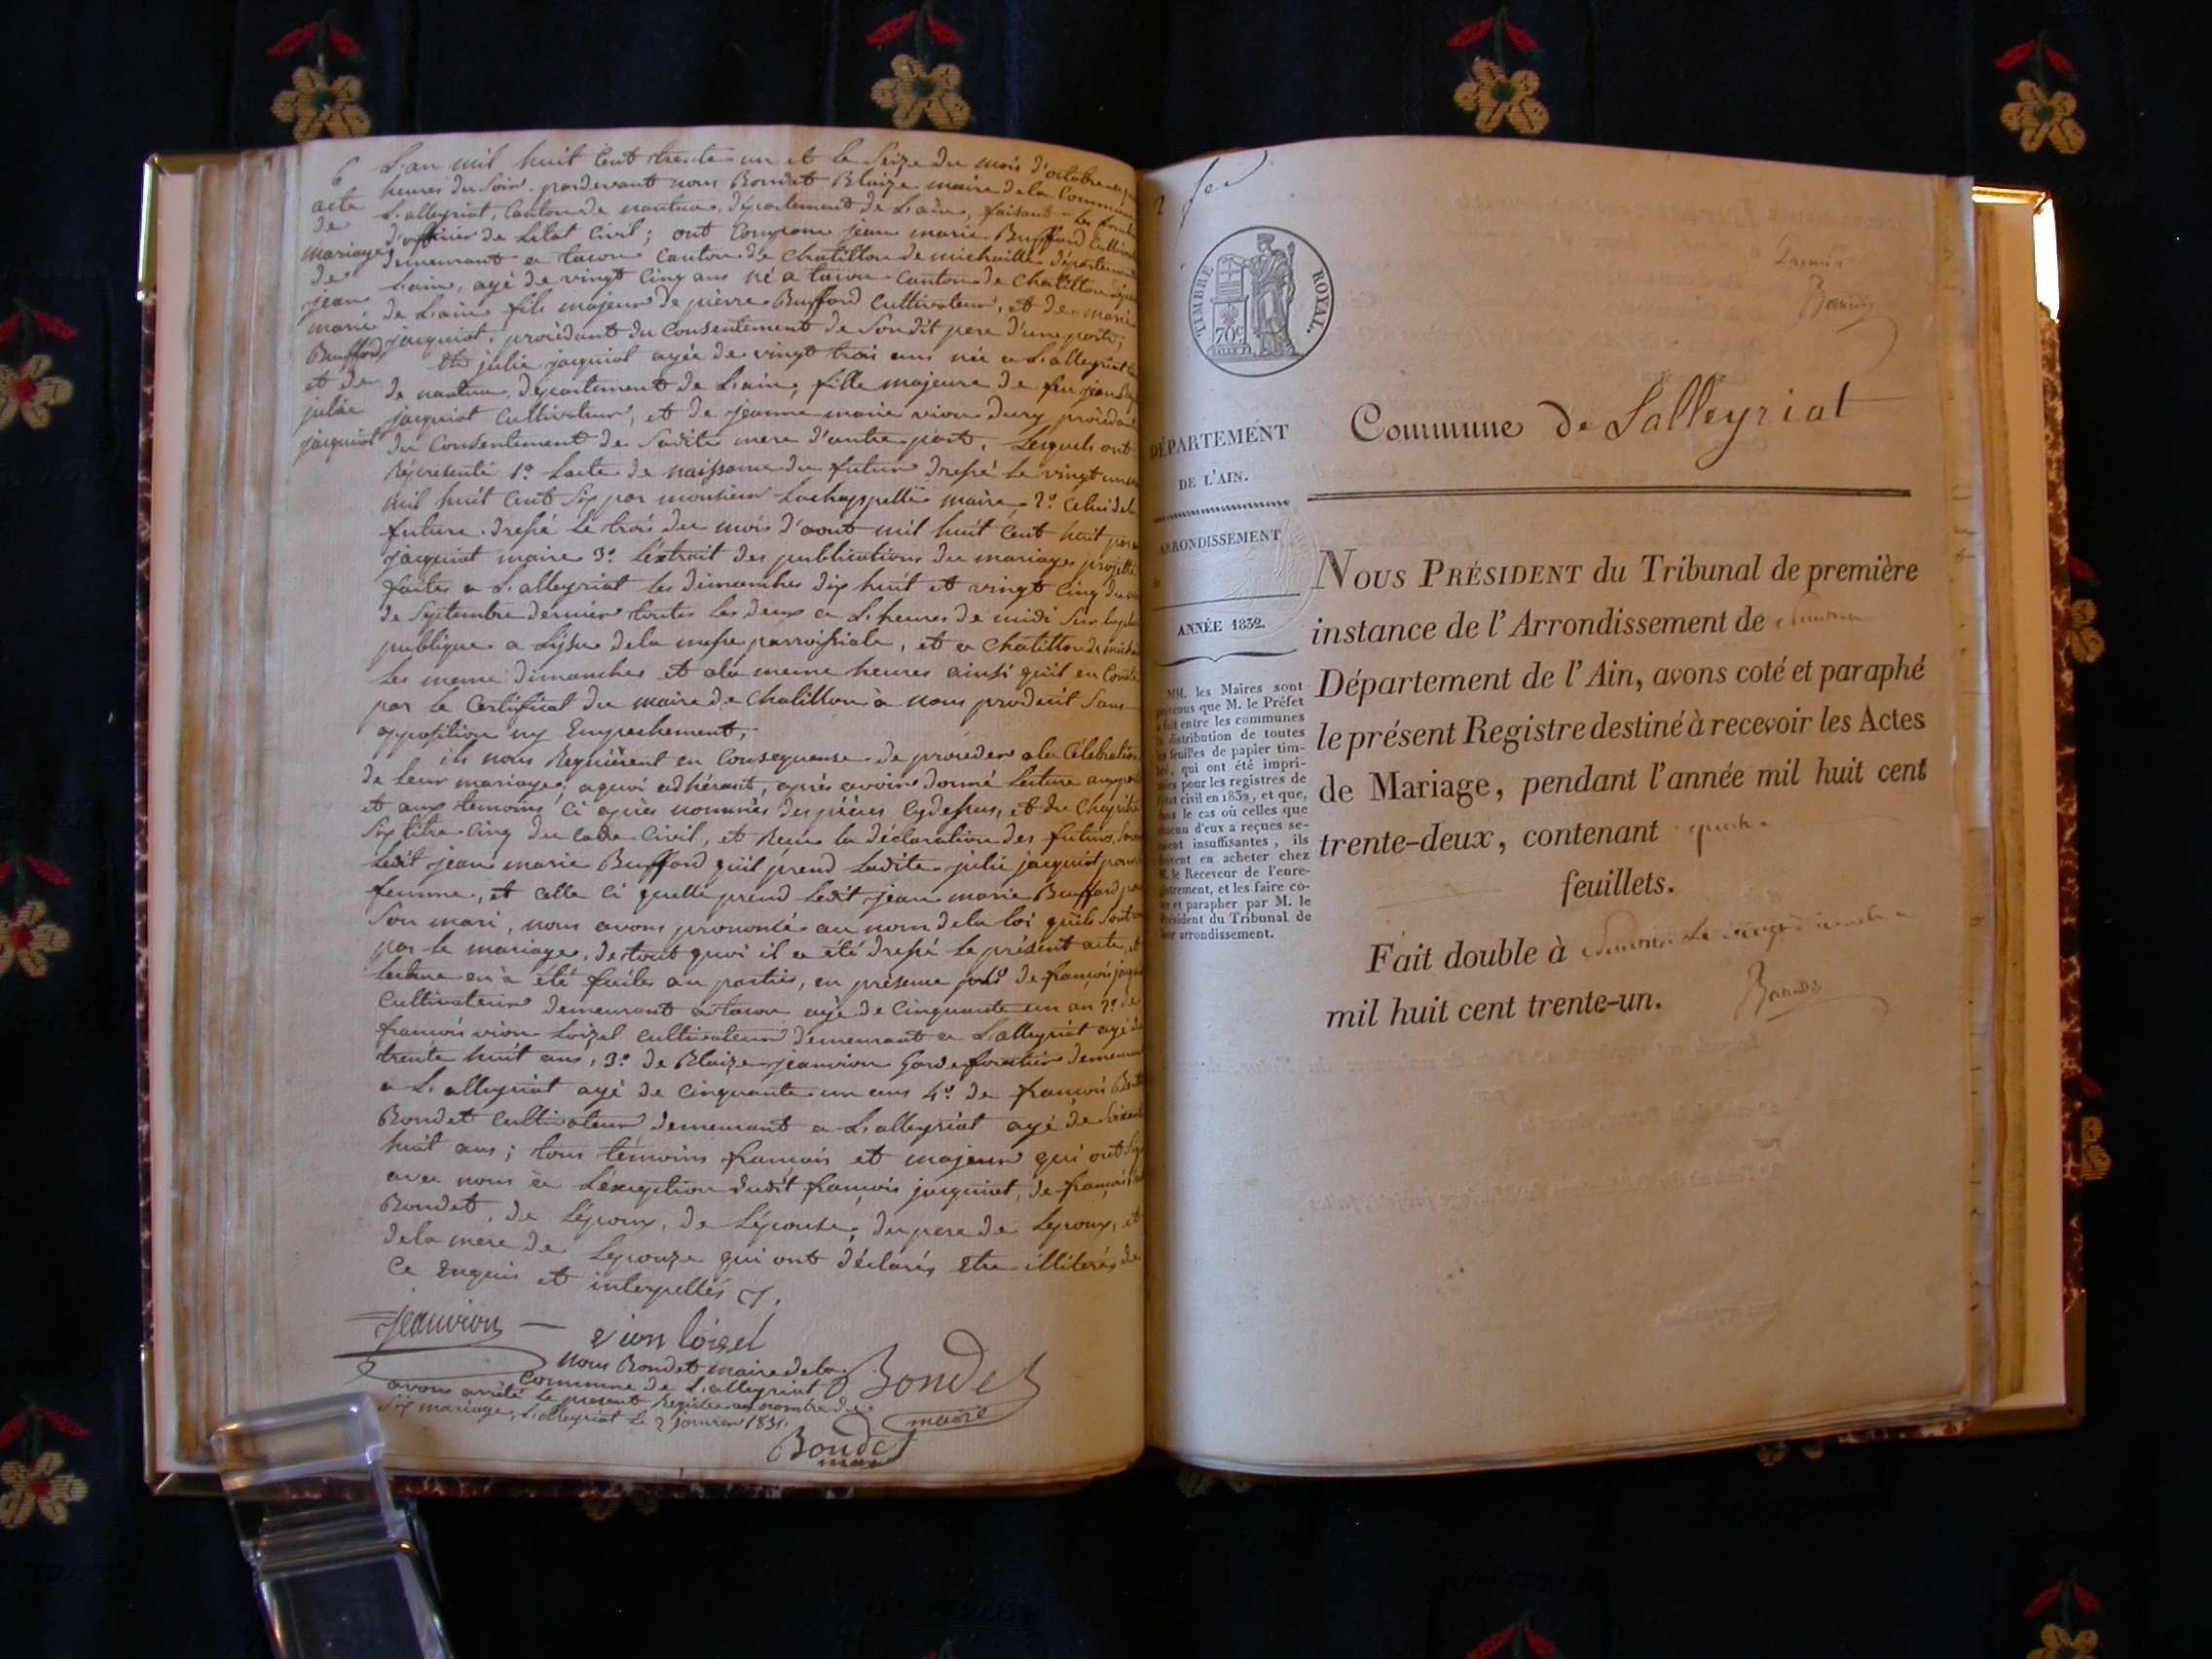 6 L'an mil huit Cent trente un et le Seize du mois d'octobre
acte heures du Soir. pardevant nous Bondet Blaize maire de la Commune
de L'alleyriat, Canton de nantua, département de L'ain, faisant les
mariage d'officier de Létat Civil; ont Comparu jean marie Buffard
de demeurant a tacon Canton de Chatillon de michaille département
jean L'ain, agé de vingt Cinq ans né a tacon Canton de Chatillon
marie de L'ain fils majeur de pierre Buffard Cultivateur, et de marie
Buffard jacquiot, procédant du Consentement de Sondit pere d'une part,
et de Et julie jacquiot agée de vingt trois ans née a L'alleyriat
julie de nantua, département de L'ain, fille majeure de feu jean
jacquiot jacquiot Cultivateur, et de jeanne marie vion dury procédant
du Consentement de Sadite mere d'autre part. Lesquels ont
Représenté 1.o Lacte de naissance du futur dressé Le vingt
mil huit Cent Six par monsieur Lachappelle maire 2.o Celui de la
future dressé Le trois du mois d'aout mil huit Cent huit par
jacquiot maire 3.o Lextrait des publications du mariage projetté
faites a L'alleyriat les dimanches dix huit et vingt Cinq du
de Septembre dernier toutes les deux a L. heures de midi Sur la
publique a Lissue de la messe parroissiale, et a Chatillon de
Les meme dimanches et a la meme heures ainsi qu'il en Conste
par le Certificat du maire de Chatillon à nous produit Sans
opposition ny Empechement.
ils nous Requièrent en Consequense de proceder a la Célébration
de leur mariage; aquoi adhérant, après avoir donné Lecture
et aux temoins Ci après nommés des pièces Cydessus, et du Chapitre
Six titre Cinq du Code Civil, et Recu la déclaration des futurs,
Ledit jean marie Buffard quil prend Ladite julie jacquiot pour
femme, et celle Ci quelle prend Ledit jean marie Buffard
Son mari, nous avons prononcé au nom de la loi quils Sont
par le mariage, de tout quoi il a été dressé le présent acte,
lecture en a été faite au parties, en présence de françois
Cultivateur demeurant a tacon agé de Cinquante un an 2.o de
francois vion Loizel Cultivateur demeurant a L'alleyriat agé de
trente huit ans, 3.o de Blaize jeanvion Garde forestier
a L'alleyriat agé de Cinquante un ans 4.o de françois
Bondet Cultivateur demeurant a L'alleyriat agé de
huit ans; tous témoins francais et majeur qui ont
avec nous à Léxception dudit françois jacquiot, de françois
Bondet, de Lépoux, de Lépouse, du pere de Lepoux, et
de la mere de Lepouze qui ont déclarés etre illiterés de
Ce Enquis et interpellés
Jeanvion vion loizel
nous Bondet maire de la
Commune de L'alleyriat
avons arrêté le present Registre au nombre de
Six mariage, L'alleyriat le 2 janvier 1831.
Bondet
maire
Bondet
maire
2
TIMBRE ROYAL.
70c
Commune de Lalleyriat
DÉPARTEMENT
DE L'AIN.
ARRONDISSEMENT
ANNÉE 1832.
MM. les Maires sont
prévenus que M. le Préfet
a fait entre les communes
la distribution de toutes
les feuilles de papier tim-
bré, qui ont été impri-
mées pour les registres de
l'état civil en 1832, et que,
dans le cas où celles que
chacun d'eux a reçues se-
raient insuffisantes, ils
doivent en acheter chez
M. le Receveur de l'enre-
gistrement, et les faire co-
ter et parapher par M. le
Président du Tribunal de
leur arrondissement.
NOUS PRÉSIDENT du Tribunal de première
instance de l'Arrondissement de Nantua
Département de l'Ain, avons coté et paraphé
le présent Registre destiné à recevoir les Actes
de Mariage, pendant l'année mil huit cent
trente-deux, contenant quatre
feuillets.
Fait double à Nantua Le
mil huit cent trente-un.